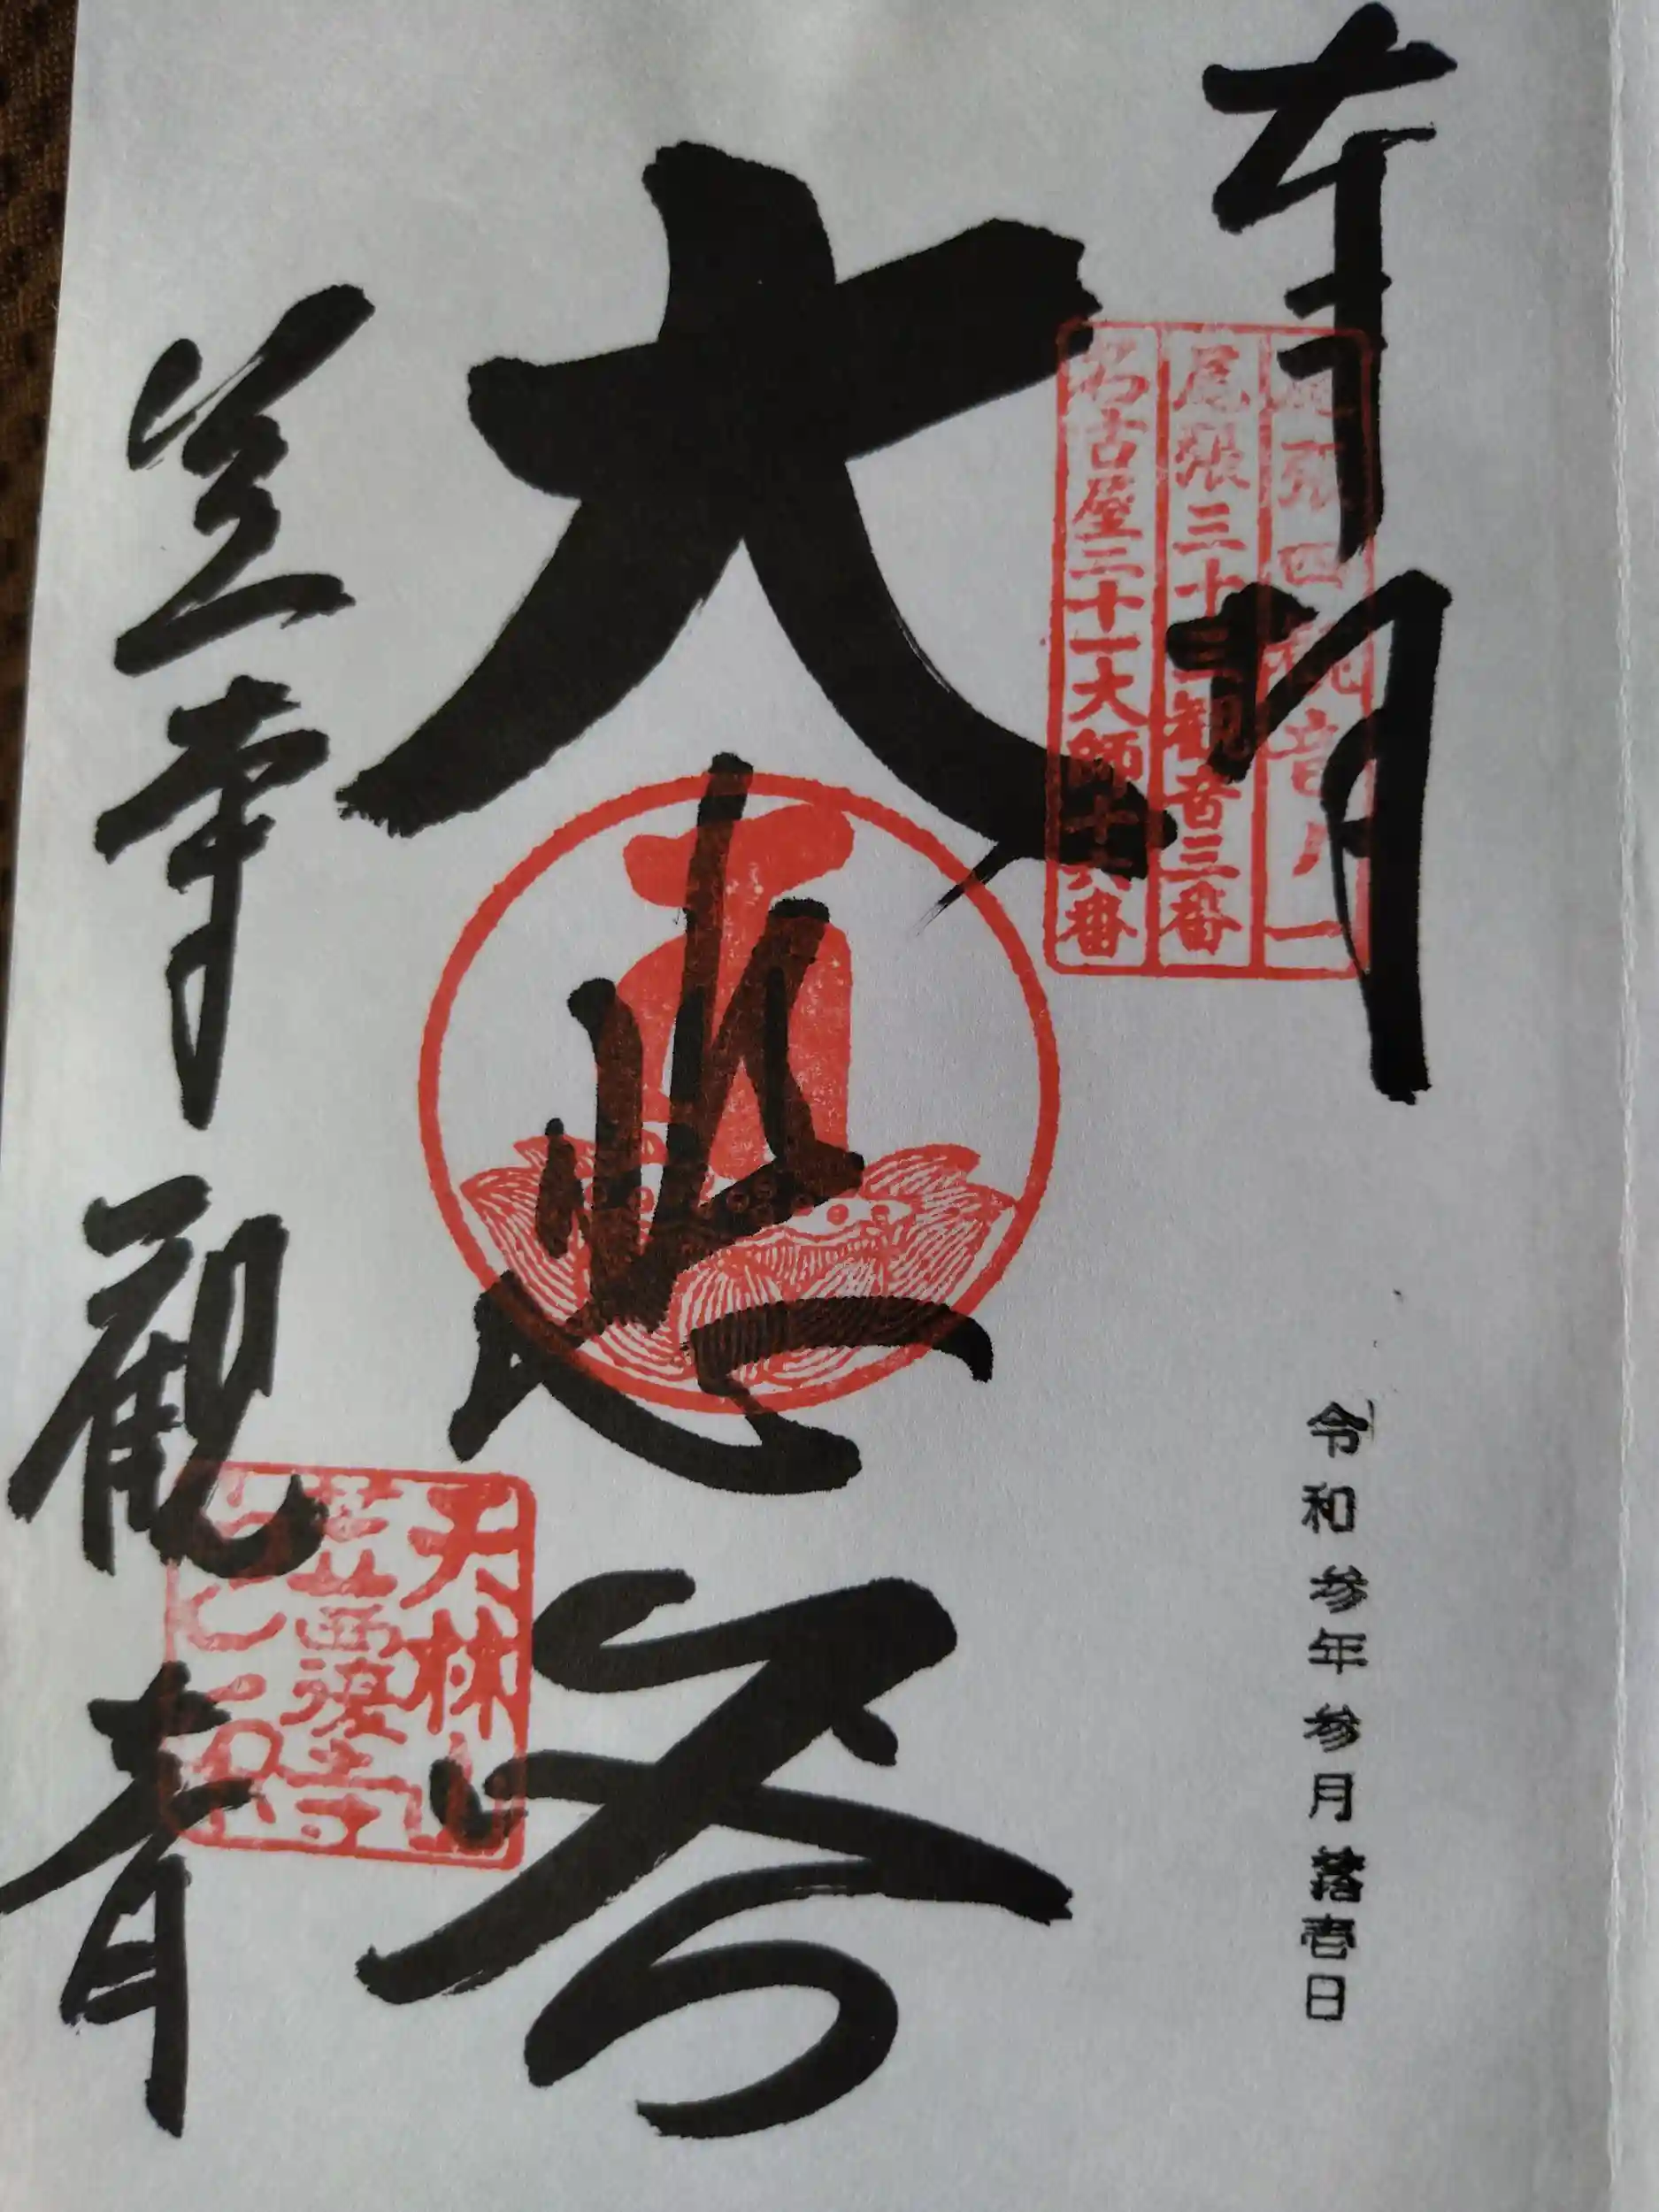 奉拝
尾張四観音ノ一
尾張三十三観音三番
名古屋二十一大師十六番
令和参年参月壱日
大悲閣
天林山
笠覆寺
笠寺観音